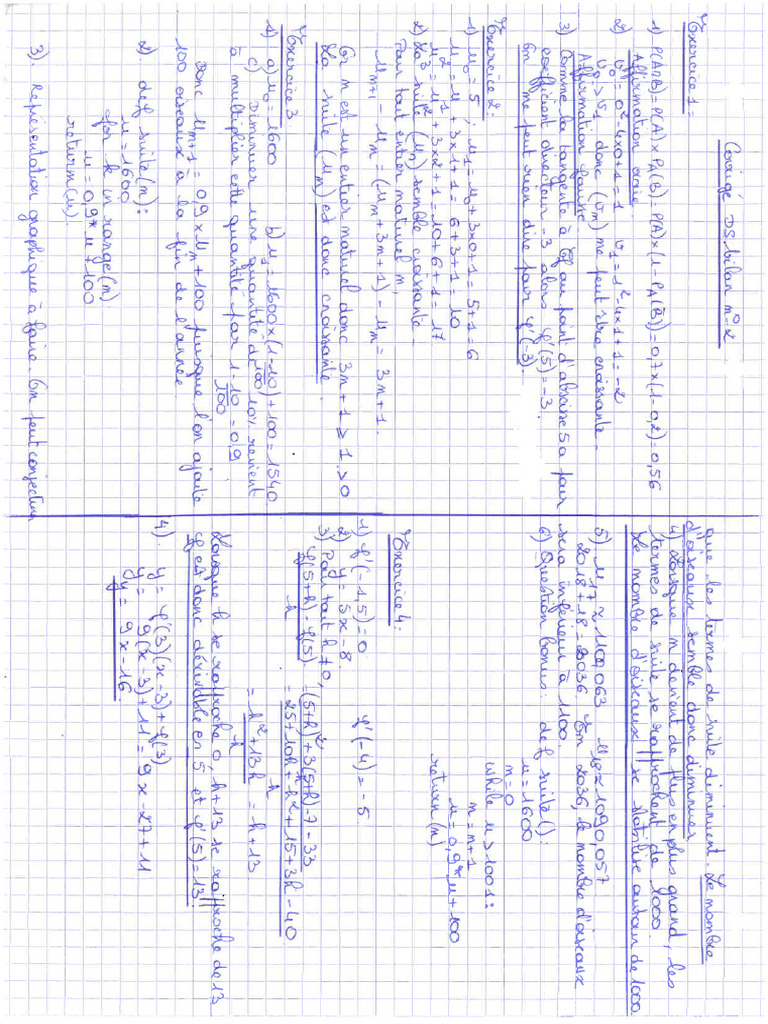 Corrigé DS bilan n°2
Exercice 1 :
1) P(A∩B)=P(A)×P_A(B)=P(A)×(1-P_A(B̄))=0,7×(1-0,2)=0,56
Affirmation vraie
2) v₀=0²-4×0+1=1 v₁=1²-4×1+1=-2
v₀>v₁ donc (v_n) ne peut être croissante.
Affirmation fausse
3) Comme la tangente à Cf au point d'abscisse 5 a pour
coefficient directeur -3 alors f'(5)=-3.
On ne peut rien dire pour f'(-3).
Exercice 2:
1) u₀=5 ; u₁=u₀+3×0+1=5+1=6
u₂=u₁+3×1+1=6+3+1=10
u₃=u₂+3×2+1=10+6+1=17
2) La suite (u_n) semble croissante.
Pour tout entier naturel n,
u_{n+1}-u_n=(u_n+3n+1)-u_n=3n+1.
Or n est un entier naturel donc 3n+1≥1>0
La suite (u_n) est donc croissante.
Exercice 3
1) a) u₀=1600 b) u₁=1600×(1-10/100)+100=1540
c) Diminuer une quantité de 10% revient
à multiplier cette quantité par 1-10/100=0,9
Donc u_{n+1}=0,9×u_n+100 puisque l'on ajoute
100 oiseaux à la fin de l'année.
2). def suite(n):
u=1600
for k in range(n)
u=0,9*u+100
return(u).
3). Représentation graphique à faire. On peut conjecturer
que les termes de suite diminuent. Le nombre
d'oiseaux semble donc diminuer
4) Lorsque n devient de plus en plus grand, les
termes de suite se rapprochent de 1000
Le nombre d'oiseaux se stabilise autour de 1000
5). u₁₇≈1100,063 u₁₈≈1090,057
2018+18=2036 En 2036, le nombre d'oiseaux
sera inférieur à 1100.
6) Question bonus: def suite():
u=1600
n=0
while u>1001:
n=n+1
u=0,9*u+100
return(n)
Exercice 4:
1) f'(-1,5)=0 f'(-4)=-5
2) y=3x-8
3) Pour tout h≠0,
(f(5+h)-f(5))/h = ((5+h)²+3(5+h)-7-33)/h
= (25+10h+h²+15+3h-40)/h
= (h²+13h)/h = h+13
Lorsque h se rapproche 0, h+13 se rapproche de 13
f est donc dérivable en 5 et f'(5)=13.
4). y=f'(3)(x-3)+f(3)
y=9(x-3)+11=9x-27+11
y=9x-16.